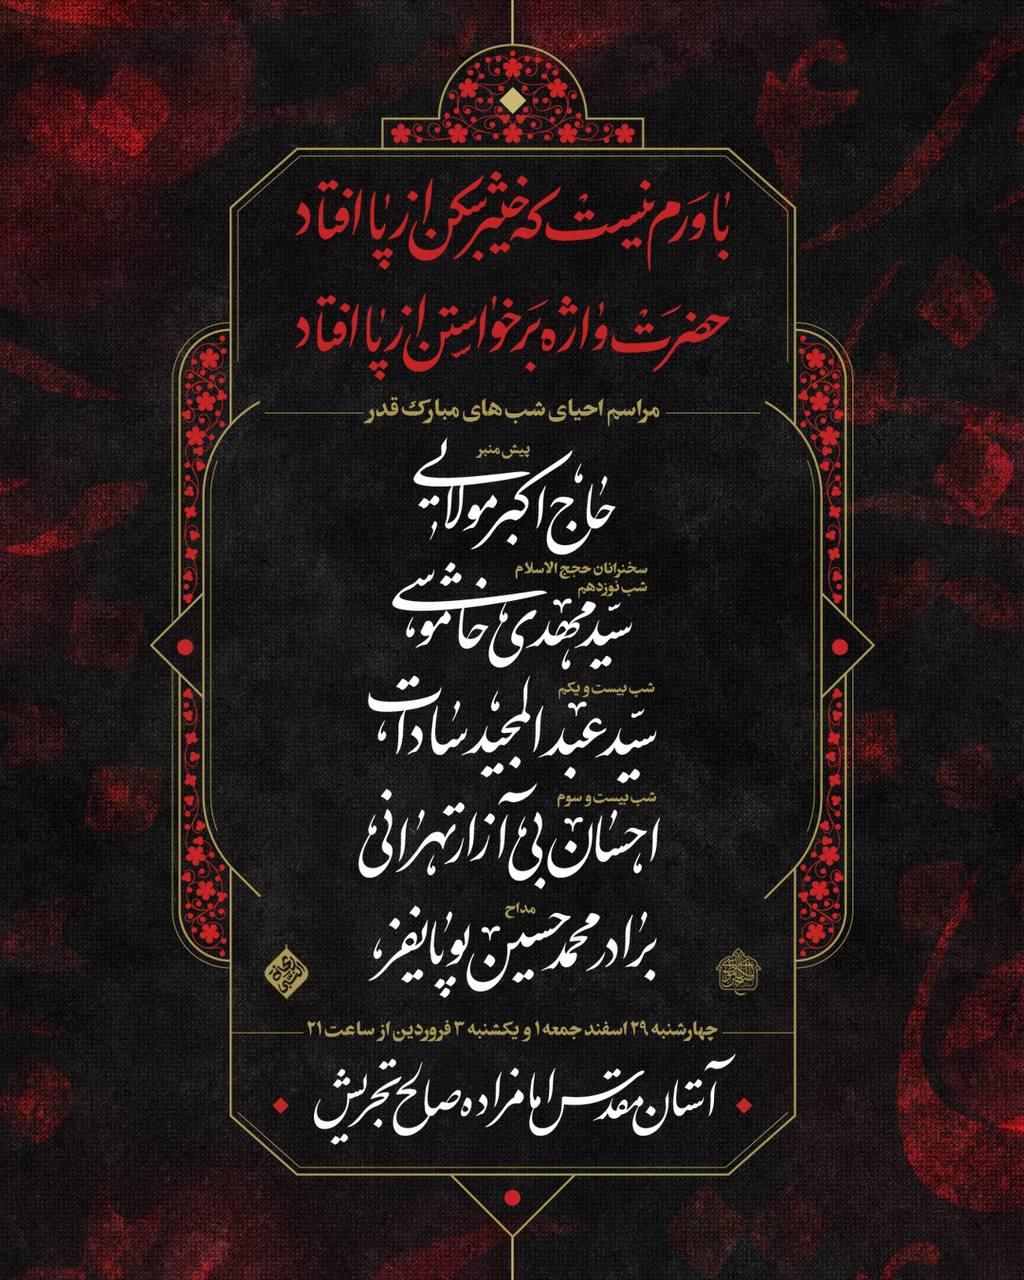 باورم نیست که خیبرشکن از پا افتاد
حضرت واژه برخواستن از پا افتاد
مراسم احیای شب های مبارک قدر
پیش منبر
حاج اکبر مولایی
سخنرانان حجج الاسلام
شب نوزدهم
سیّد مهدی خاموشی
شب بیست و یکم
سیّد عبدالمجید سادات
شب بیست و سوم
احسان بی آزار تهرانی
مداح
برادر محمدحسین پویانفر
چهارشنبه ۲۹ اسفند جمعه ۱ و یکشنبه ۳ فروردین از ساعت ۲۱
آستان مقدس امامزاده صالح تجریش